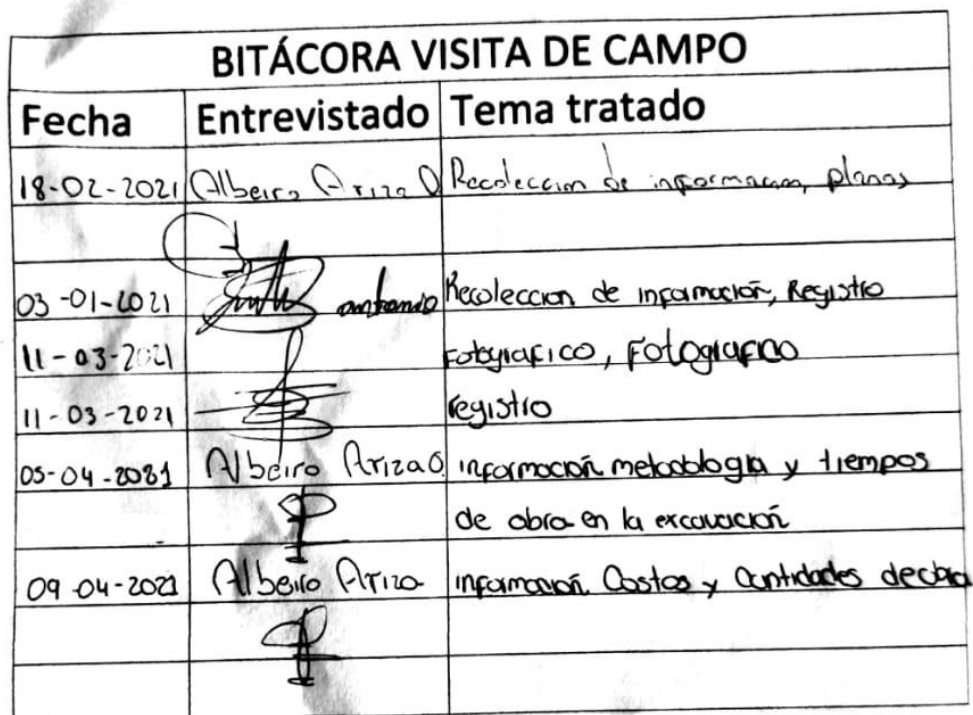 BITÁCORA VISITA DE CAMPO
Fecha Entrevistado Tema tratado
18-02-2021 Albeiro Ariza O Recoleccion de informacion, planos
03-01-2021 antonio Recoleccion de información, Registro
11-03-2021 Fotografico, Fotografico
11-03-2021 registro
05-04-2021 Albeiro Ariza O. información metodologia y tiempos
de obra en la excavación
09-04-2021 Albeiro Ariza información Costos y Cantidades de obra